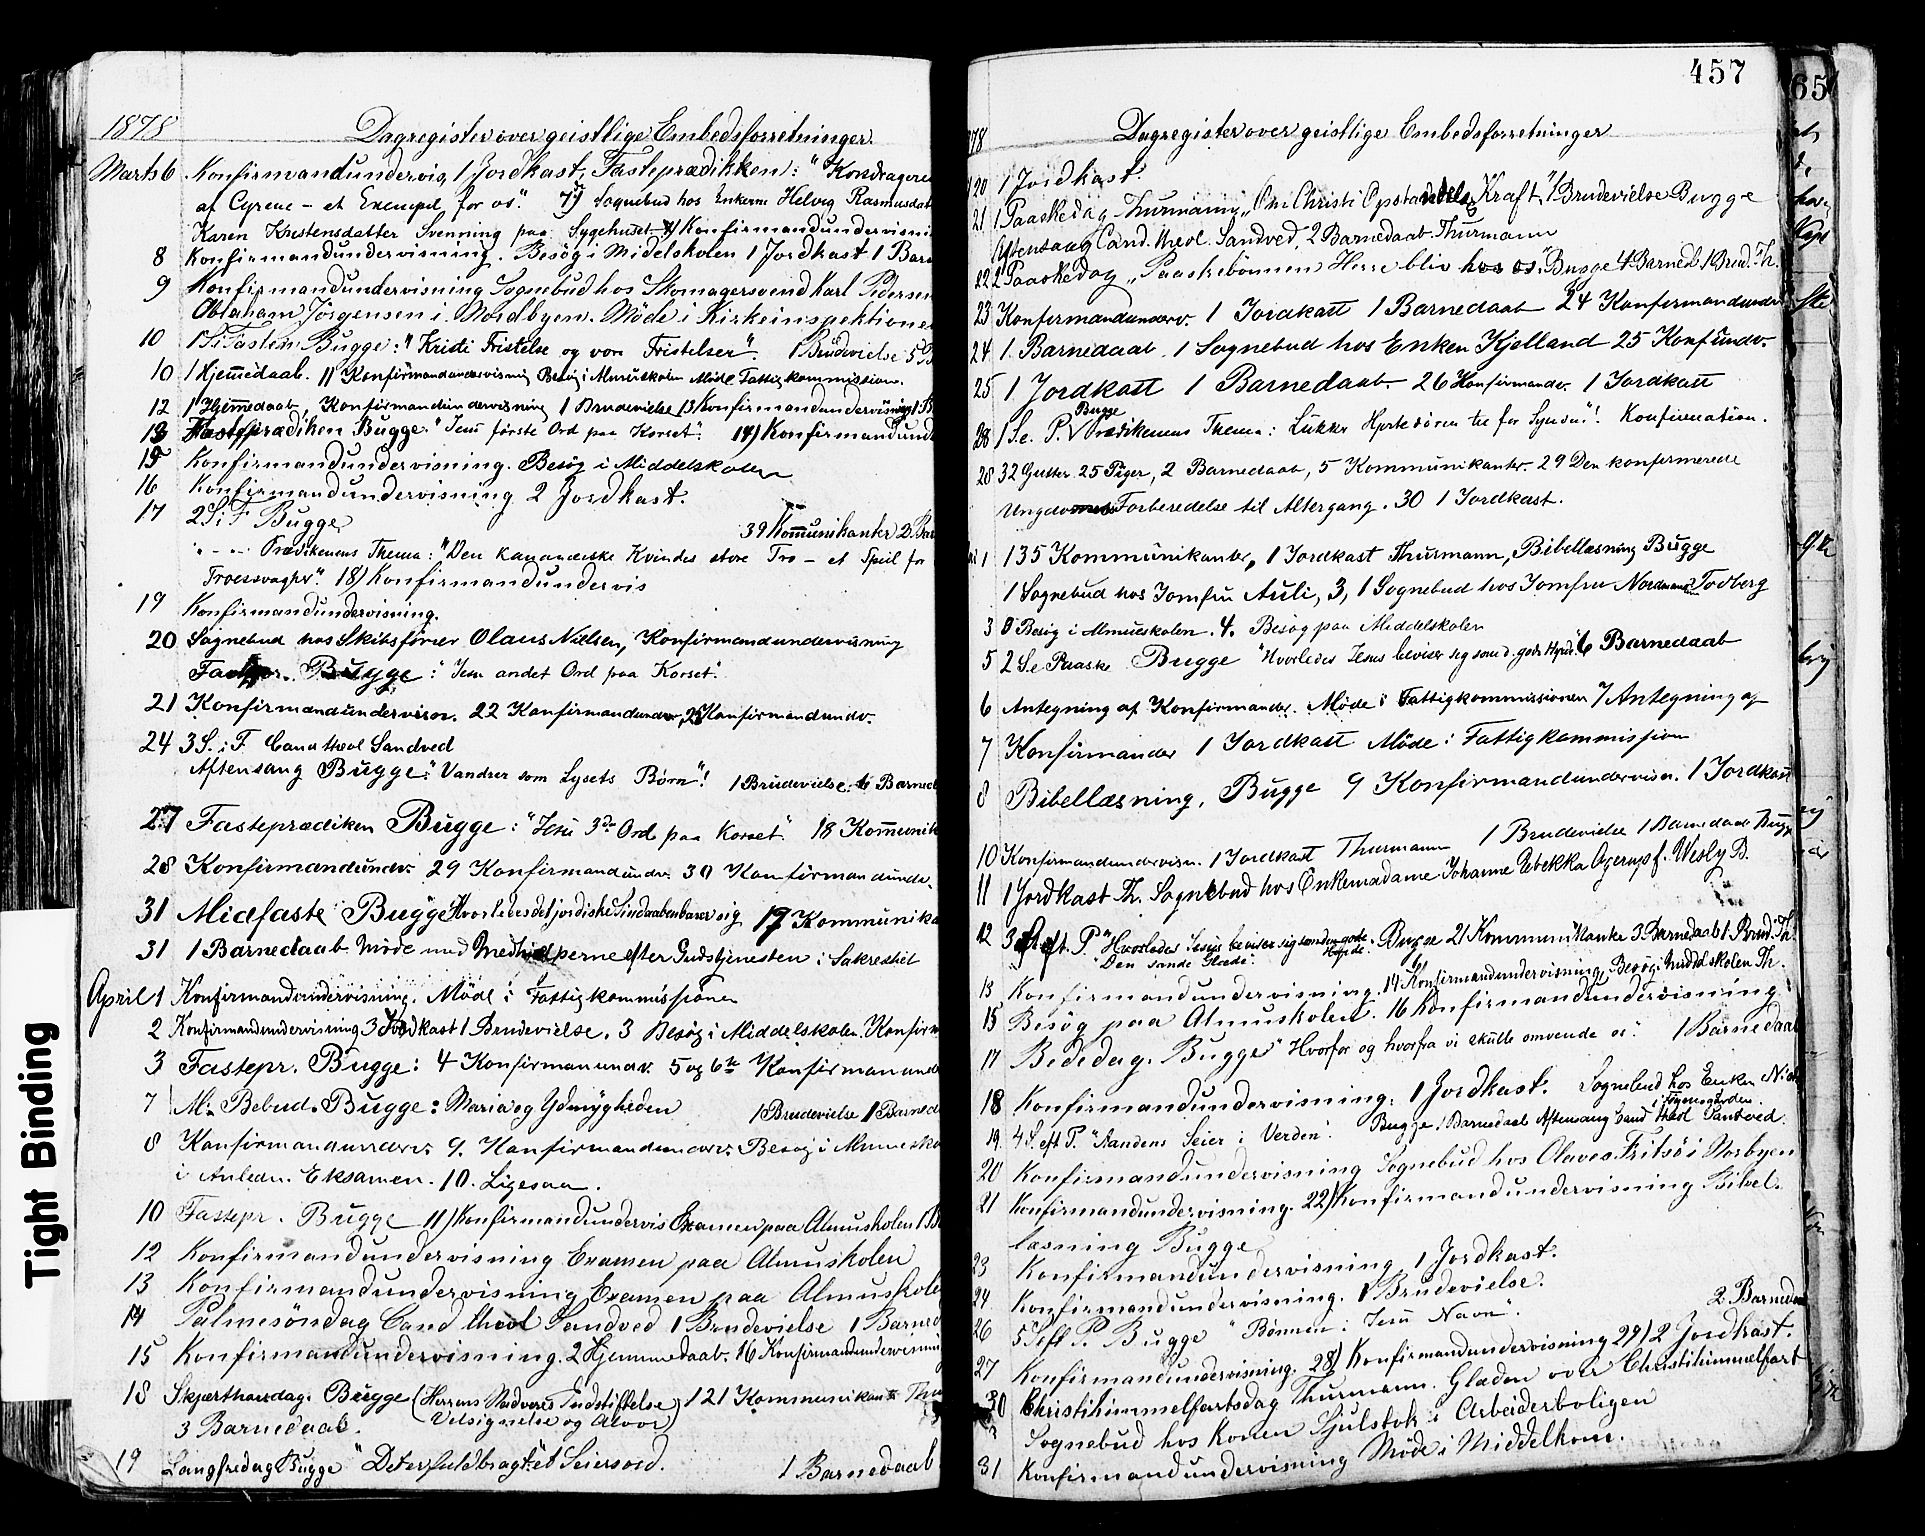 1878
Dagregister over geistlige Embedsforretninger.
Marts 6 Konfirmandundervis. 1 Jordkast, Fasteprædikken: "Korsdrageren
af Cyrene – et Exempel for os". 7) Sognebud hos Enkerne Helvig Rasmusdat
Karen Kristensdatter Svenning paa Sygehuset Konfirmandundervisni
8 Konfirmandundervisning. Besøg i Midelskolen 1 Jordkast 1 Barn
9 Konfirmandundervisning Sognebud hos Skomagersvend Karl Pedersen
Abraham Jörgensen i Nordbyen. Møde i Kirkeinspektione
10 1 S. i Fasten Bugge: "Kristi Fristelse og vore Fristelser". 1 Brudevielse 5 B
10 1 Hjemedaab. 11 Konfirmandundervisning Besøg i Almueskolen Møde Fattigkommission.
12 1 Hjemedaab, Konfirmandundervisning 1 Brudevielse 13 Konfirmandundervisning 1 B
13 Fasteprædiken Bugge. "Jesu første Ord paa Korset". 14) Konfirmandund
15 Konfirmandundervisning. Besøg i Middelskolen
16 Konfirmandundervisning 2 Jordkast.
17 2 S. i F Bugge 39 Kommunikanter 2 Bar
" - " Prædikenens Thema: "Den kananæiske Kvindes store Tro – et Speil for
Troessvaghr". 18) Konfirmandundervis
19 Konfirmandundervisning.
20 Sognebud hos Skibsfører Olaus Nielsen, Konfirmandundervisning
Bugge: "Jesu andet Ord paa Korset".
21 Konfirmandundervisn. 22 Konfirmandunderv, 23 Konfirmandundv.
24 3 S. i F. Cand theol Sandved
Aftensang Bugge: "Vandrer som Lysets Børn"! 1 Brudevielse. 6 Barned
27 Fasteprædiken Bugge: "Jesu 3die Ord paa Korset". 18 Kommunik
28 Konfirmandundv. 29 Konfirmandundv. 30 Konfirmandundv.
31 Midfaste Bugge Hvorledes det jordiske Sind aabenbarer sig 17 Kommunika
31 1 Barnedaab Møde med Medhjelperne efter Gudstjenesten i Sakrestiet
April 1 Konfirmandundervisning. Møde i Fattigkommissionen
2 Konfirmandundervisning 3 Jordkast 1 Brudevielse. 3 Besøg i Middelskolen Konfirm
3 Fastepr. Bugge: 4 Konfirmanundv. 5 og 6te Konfirmanund
7 M. Bebud. Bugge: Maria og Ydmygheden 1 Brudevielse 1 Barned
8 Konfirmandunderv. 9. Konfirmandunderv. Besøg i Almuesko
i Anledn. Eksamen. 10. Ligesaa.
10 Fastepr. Bugge 11) Konfirmandundervis Examen paa Almuskolen 1 B
12 Konfirmandundervisning Examen paa Almuskolen
13 Konfirmandundervisning Examen paa Almuskole
14 Palmesöndag Cand theol Sandved 1 Brudevielse 1 Barned
15 Konfirmandundervisning. 2 Hjemmedaab. 16 Konfirmandundervisning
18 Skjærthorsdag. Bugge (Herrens Nadveres Indstiftelse 121 Kommunikant Thu
Velsignelse og Alvor)
3 Barnedaab.
19 Langfredag Bugge "Det er fuldbragt" et Seiersord. 1 Barnedaab
457
78
Dagregister over geistlige Embedsforretninger
20 1 Jordkast.
21 1 Paaskedag Thurmann "Om Christi Opstandelses Kraft" 1 Brudevielse Bugge
Aftensang Cand. theol. Sandved, 2 Barnedaab. Thurmann
22 2 Paaskedag "Paaskebønnen Herre bliv hos os." Bugge 4 Barned. 1 Brud. Th.
23 Konfirmandunderv. 1 Jordkast 1 Barnedaab 24 Konfirmandunder
24 1 Barnedaab. 1 Sognebud hos Enken Kjelland 25 Konfundv.
25 1 Jordkast 1 Barnedaab. 26 Konfirmandv. 1 Jordkast
28 1 S. e. P. Bugge Prædikenens Thema: Lukker Hjertedøren til for Synden"! Konfirmation.
28 32 Gutter 25 Piger, 2 Barnedaab, 5 Kommunikanter. 29 Den konfirmerede
Ungdoms Forberedelse til Altergang. 30 1 Jordkast.
1 135 Kommunikanter, 1 Jordkast Thurmann, Bibellæsning Bugge
1 Sognebud hos Jomfru Auli, 3, 1 Sognebud hos Jomfru Nordmand Todberg
3 Besøg i Almueskolen. 4. Besøg paa Middelskolen
5 2 S. e. Paaske Bugge "Hvorledes Jesus beviser sig som d. gode Hyrde" 6 Barnedaab
6 Antegning af Konfirmander. Møde i Fattigkommissionen 7 Antegning af
7 Konfirmander 1 Jordkast Møde i Fattigkommission
8 Bibellæsning, Bugge 9 Konfirmandundervisn. 1 Jordkast
10 Konfirmandundervisn. 1 Jordkast Thurmann 1 Brudevielse 1 Barnedaab Bugge
11 1 Jordkast Th. Sognebud hos Enkemadame Johanne Rebekka Agerup f. Wesly B.
12 3 S. eft. P. "Hvorledes Jesus beviser sig som den gode Hyrde. Bugge 21 Kommunikanter 3 Barnedaab 1 Brud. Th.
"Den sande Glæde".
13 Konfirmandundervisning. 14 Konfirmandundervisning, Besøg i Middelskolen Th.
15 Besøg paa Almuskolen. 16 Konfirmandundervisning.
17 Bededag. Bugge "Hvorfor og hvorfra vi skulle omvende os". 1 Barnedaab
18 Konfirmandundervisning. 1 Jordkast. Sognebud hos Enken
19. 4 S. eft P. "Aandens Seier i Verden". Bugge 1 Barnedaab Aftensang Cand theol Sandved.
20 Konfirmandundervisning Sognebud hos Olaves Fritsø i Storbyen
21 Konfirmandundervisning. 22) Konfirmandundervisning Bibel-
læsning Bugge
23 Konfirmandundervisning 1 Jordkast.
24 Konfirmandundervisning. 1 Brudevielse.
26 5 S eft P. Bugge "Bønnen i Jesu Navn". 2 Barnedaa
27 Konfirmandundervisning. 28) Konfirmandundervisning 29) 2 Jordkast.
30 Christihimmelfartsdag Thurmann. Glæden over Christihimmelfart
Sognebud hos Konen Hjulstok i Arbeiderboligen
31 Konfirmandundervisning Møde i Middelkom.
65
Tight Binding